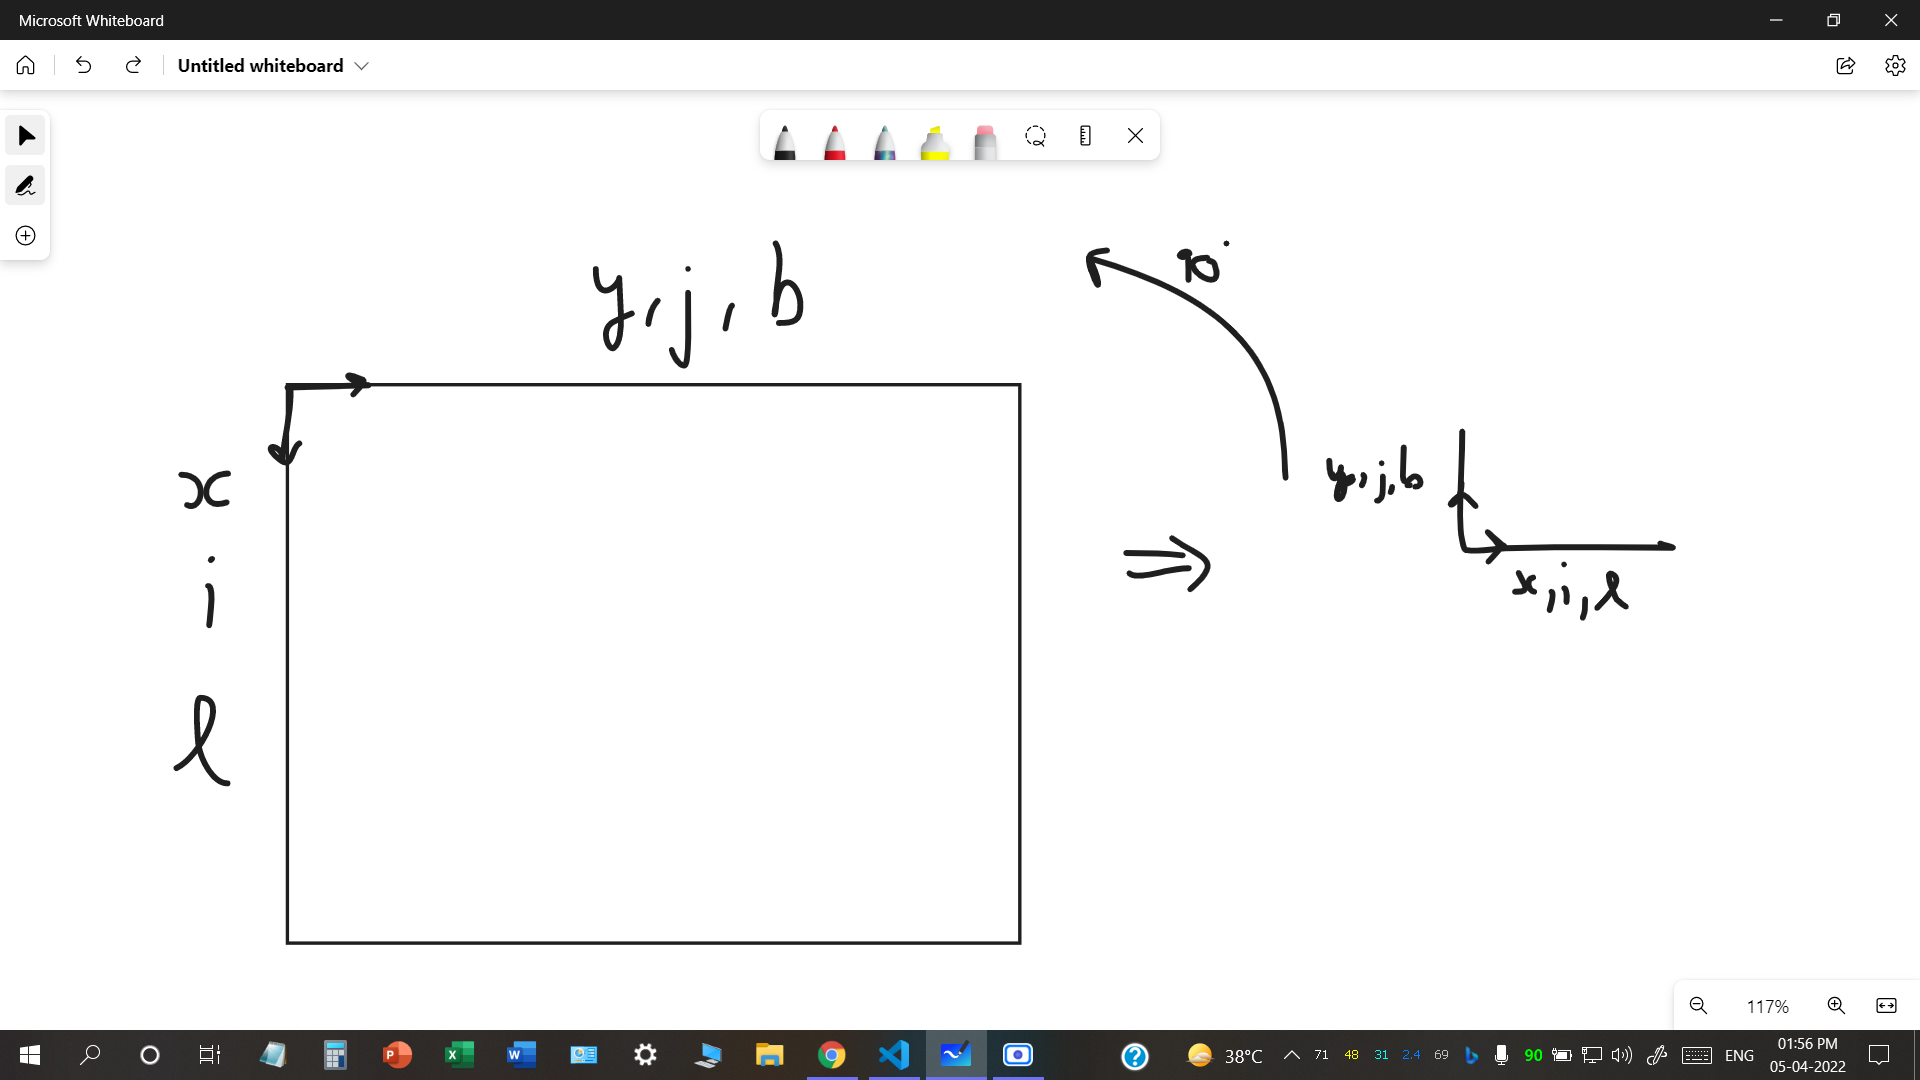 Microsoft Whiteboard
Untitled whiteboard
y, j, b
90°
x
i
l
y, j, b
x, i, l
117%
38°C 71 48 31 2.4 69 90 ENG 01:56 PM
05-04-2022